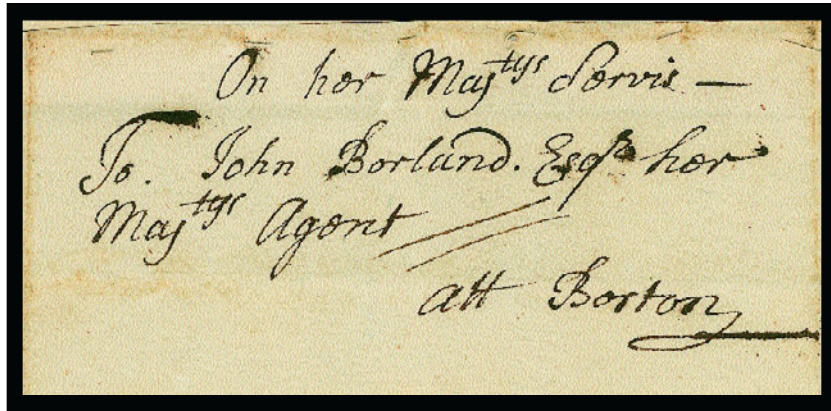 On her Maj^tys Servis —
To. John Borland. Esq^r her
Maj^tys Agent
att Boston